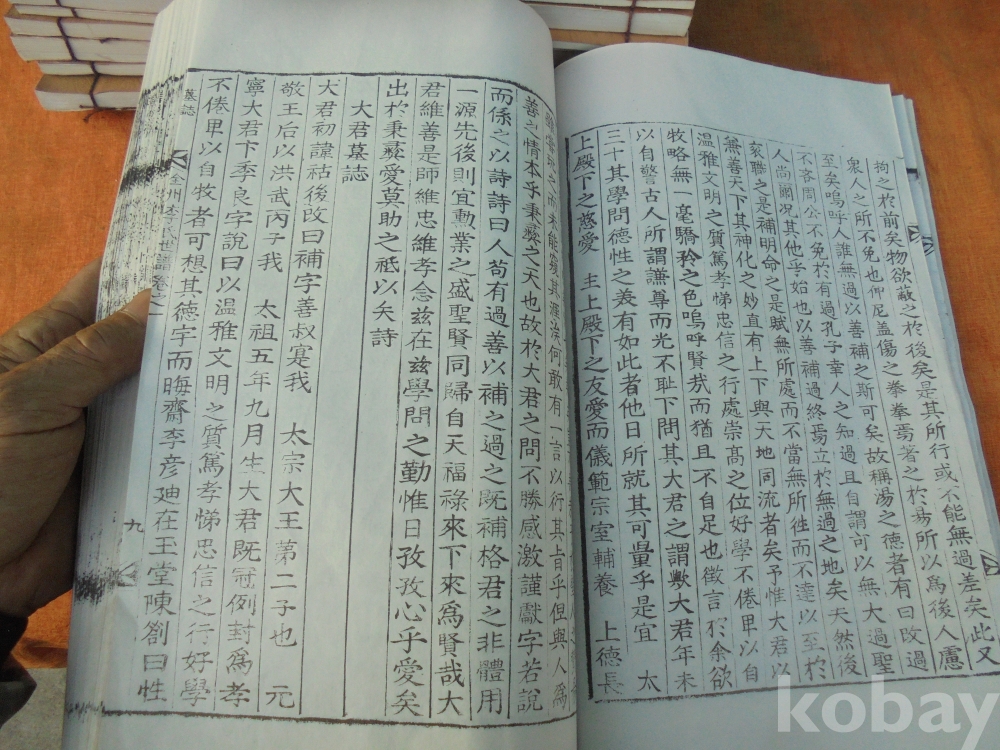 拘之於前矣物欲蔽之於後矣是其所行或不能無過差矣此又
衆人之所不免也仰尼盖傷之拳拳焉著之於易所以爲後人慮
至矣嗚呼人誰無過以善補之斯可矣故稱湯之德者有曰改過
不吝周公不免於有過孔子幸人之知過且自謂可以無大過聖
人尚爾况其他乎始也以善補過終焉立於無過之地矣夫然後
衮職之是補明命之是賦無所處而不當無所徃而不達以至於
無善天下其神化之妙直有上下與天地同流者矣予惟大君以
温雅文明之質篤孝悌忠信之行處崇高之位好學不倦卑以自
牧略無一毫驕矜之色嗚呼賢㦲而猶且不自足也徵言於余欲
以自警古人所謂謙尊而光不耻下問其大君之謂歟大君年未
三十其學問德性之美有如此者他日所就其可量乎是宜 太
上殿下之慈愛 主上殿下之友愛而儀範宗室輔養 上德長
善之情本乎秉彛之天也故於大君之問不勝感激謹獻字若說
而係之以詩詩曰人苟有過善以補之過之既補格君之非體用
一源先後則宜勳業之盛聖賢同歸自天福祿來下來爲賢哉大
君維善是師維忠維孝念兹在兹學問之勤惟日孜孜心乎愛矣
出於秉彛愛莫助之祗以矣詩
大君墓誌
大君初諱祜後改曰補字善叔寔我 太宗大王第二子也 元
敬王后以洪武丙子我 太祖五年九月生大君既冠例封爲孝
寧大君卞季良字說曰以温雅文明之質篤孝悌忠信之行好學
不倦卑以自牧者可想其德宇而晦齋李彦廸在玉堂陳劄曰性
墓誌
全州李氏世譜卷之一
九
kobay